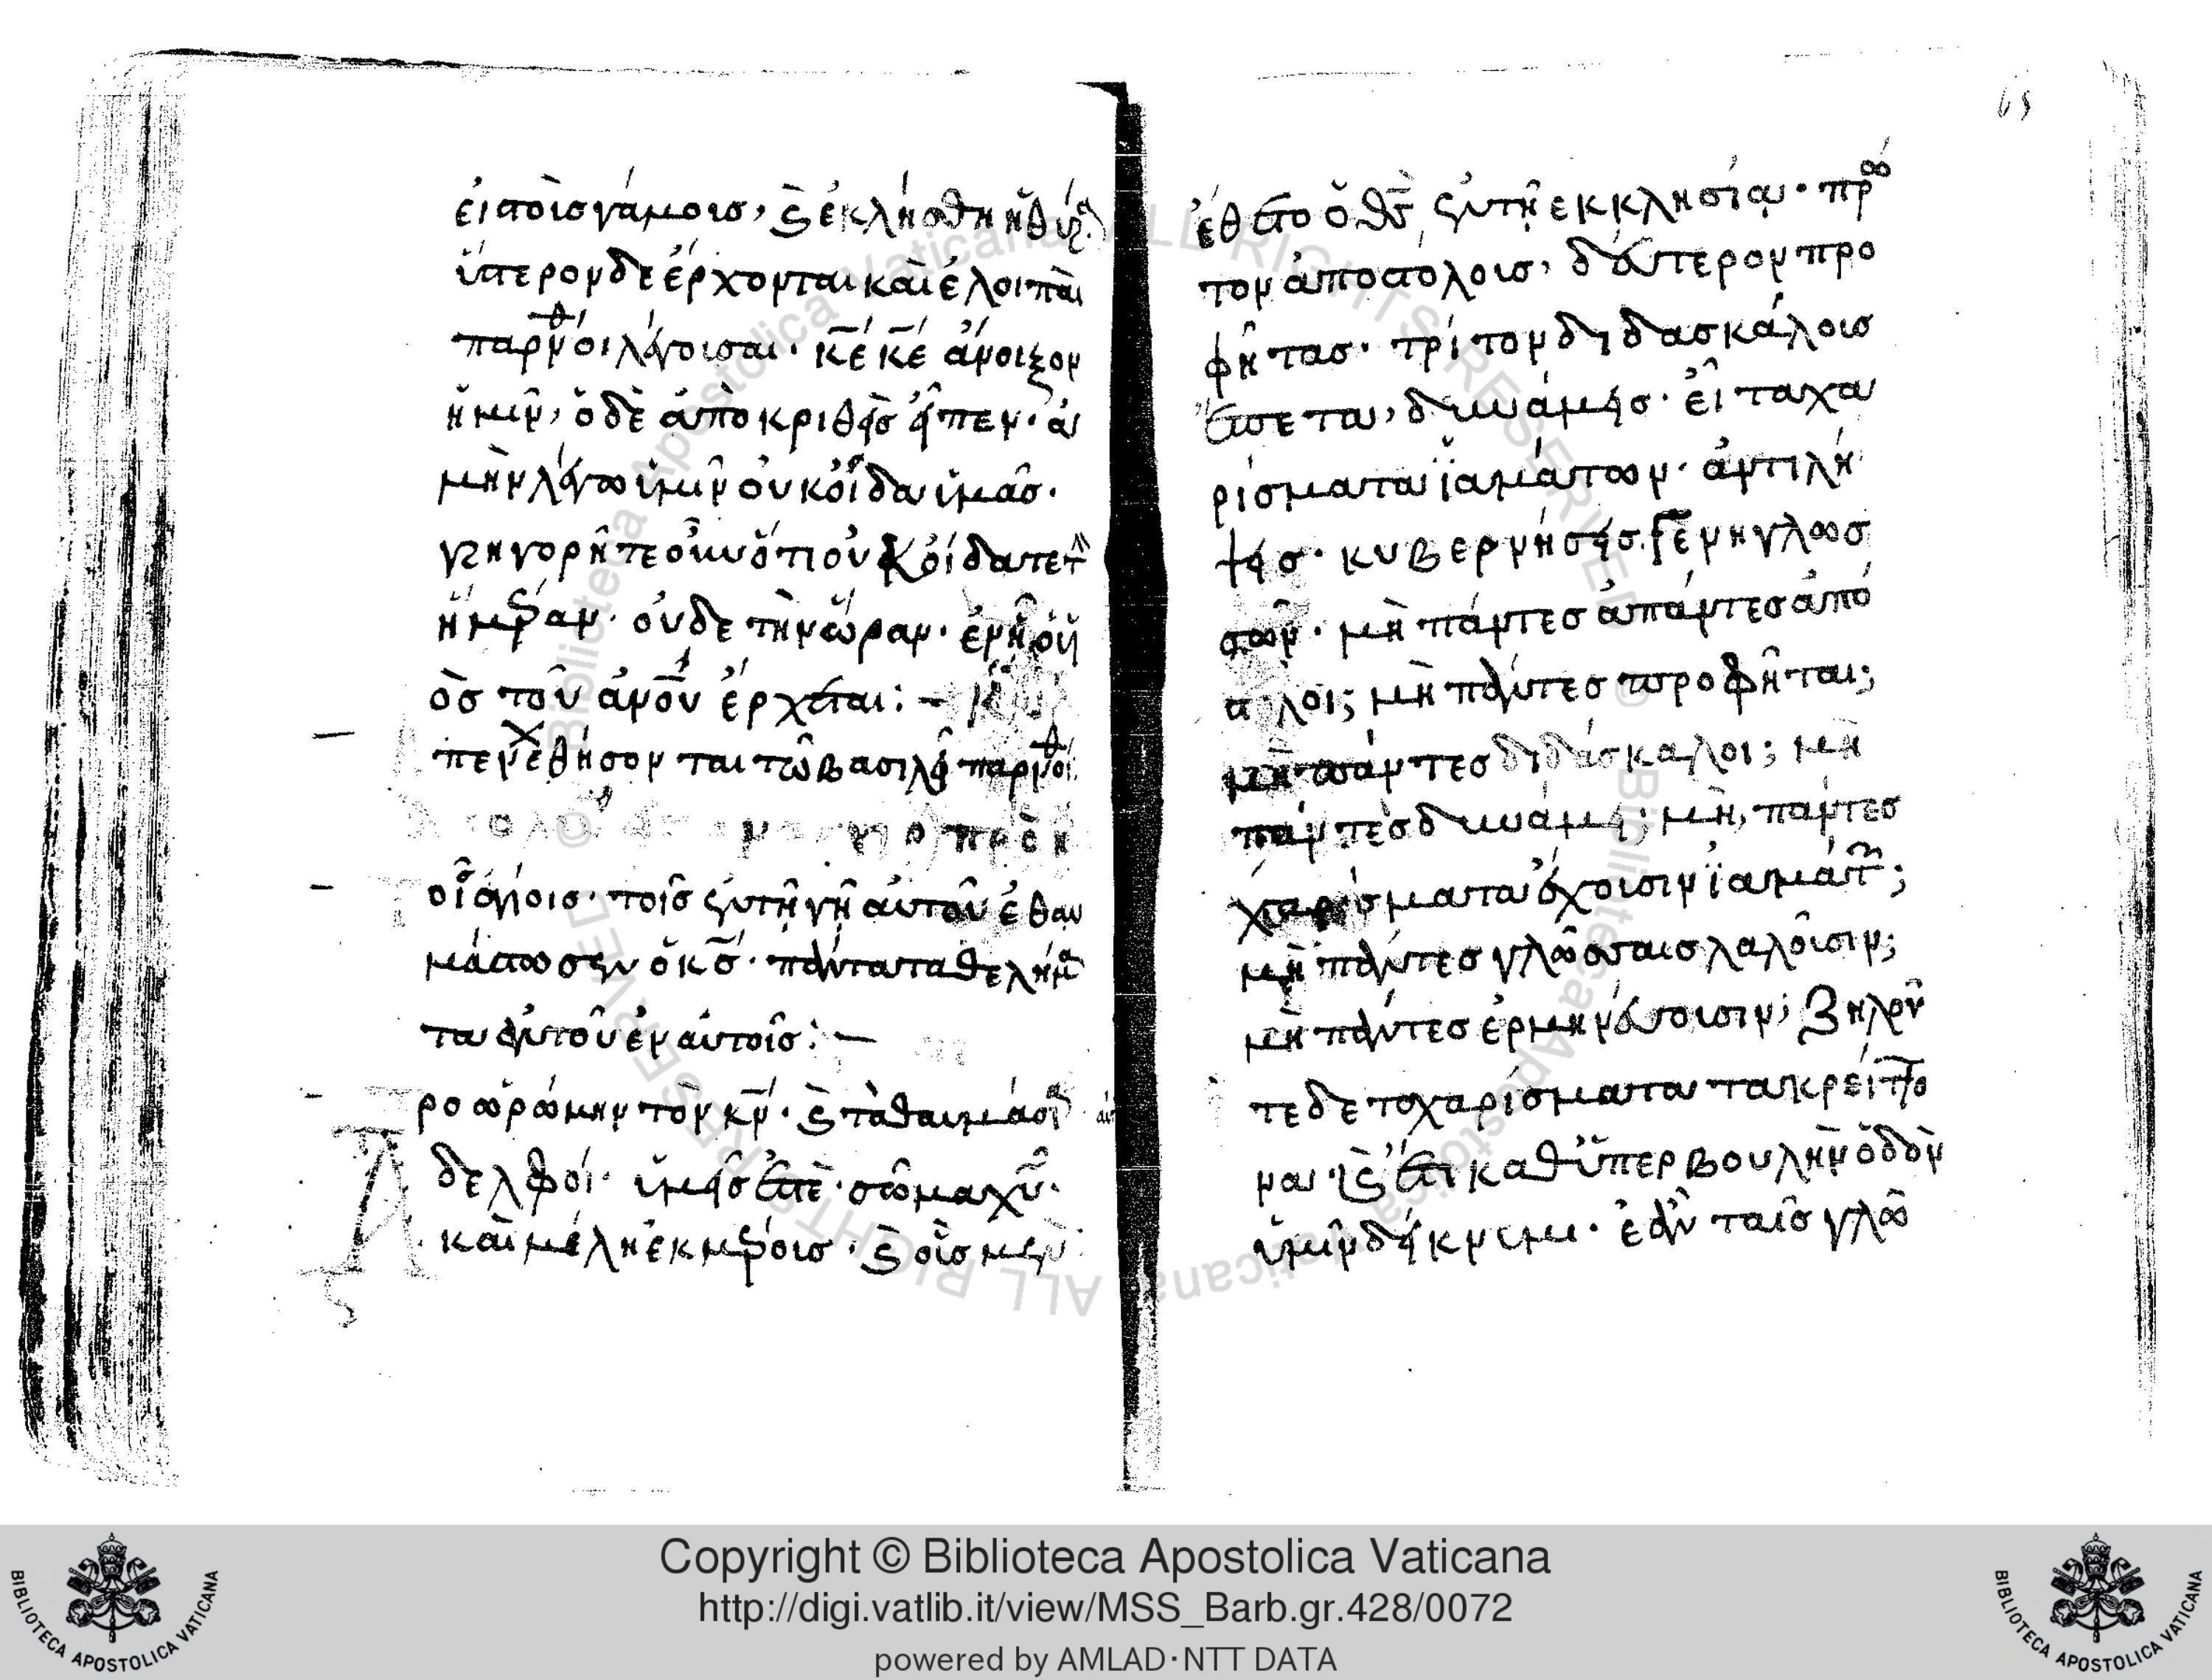 65
εἰστοὺσγάμουσ, ϗ ἐκλήσθηἡθύρα
ὕστερονδεἔρχονται καὶ ἑλοιπαὶ
παρθνοιλέγουσαι· κ̅ε κ̅ε ἄνοιξον
ἡμῖν, ὁδὲ ἀποκριθεὶσ εἶπεν· ἀ
μὴνλέγωὑμῖν οὐκοἶδα ὑμᾶσ·
γρηγορῆτε οὖν ὅτι οὐκοίδατε τὴν
ἡμέραν· οὐδε τὴνὥραν· ἐνῇὁ ὑι
ὸσ τοῦ ἀνου ἔρχεται: –
πενεχθήσονται τῶ βασιλεῖ παρθνοι
οἱ ἅγιοισ· τοῖσ ἐν τῆ γῆ αὐτοῦ ἐθαυ
μάστωσεν ὁ κ̅σ· πάντατα θελήμα
τα αὐτοῦ ἐν αὐτοῖσ: –
ρο ωρώμην τὸν κ̅ν· ϗ ταθαυμάσι
Ἀδελφοί· ὑμεῖσ ἐστὲ· σῶμα χ̅υ·
καὶ μέλη ἐκ μέρουσ· ϗ οὓσ μεν
ἔθετο ὁ θ̅σ ἐν τῆ εκκλησία· πρῶ
τον ἀποστόλουσ, δεύτερον προ
φήτασ· τρίτον διδασκάλουσ
ἔπετα, δυνάμεισ· εἶτα χα
ρίσματα ἰαμάτων· ἀντιλή
ψεισ· κυβερνήσεισ· γένη γλωσ
σῶν· μὴ πάντεσ ἀπάντεσ ἀπό
στολοι; μὴ πάντεσ προφῆται;
μὴ πάντεσ διδάσκαλοι; μὴ
πάντεσ δυνάμεισ; μὴ, πάντεσ
χαρίσματα ἔχουσιν ἰαμάτων;
μὴ πάντεσ γλώσσαισ λαλοῦσιν;
μὴ πάντεσ ἑρμηνεύουσιν; Ζηλοῦ
τε δε τοχαρίσματα τα κρείττο
να· ϗ ἔτι καθ ὑπερβουλὴν ὁδὸν
ὑμῖν δείκνυμι· ἐὰν ταῖσ γλώ
Copyright © Biblioteca Apostolica Vaticana
http://digi.vatlib.it/view/MSS_Barb.gr.428/0072
powered by AMLAD·NTT DATA
BIBLIOTECA APOSTOLICA VATICANA
BIBLIOTECA APOSTOLICA VATICANA